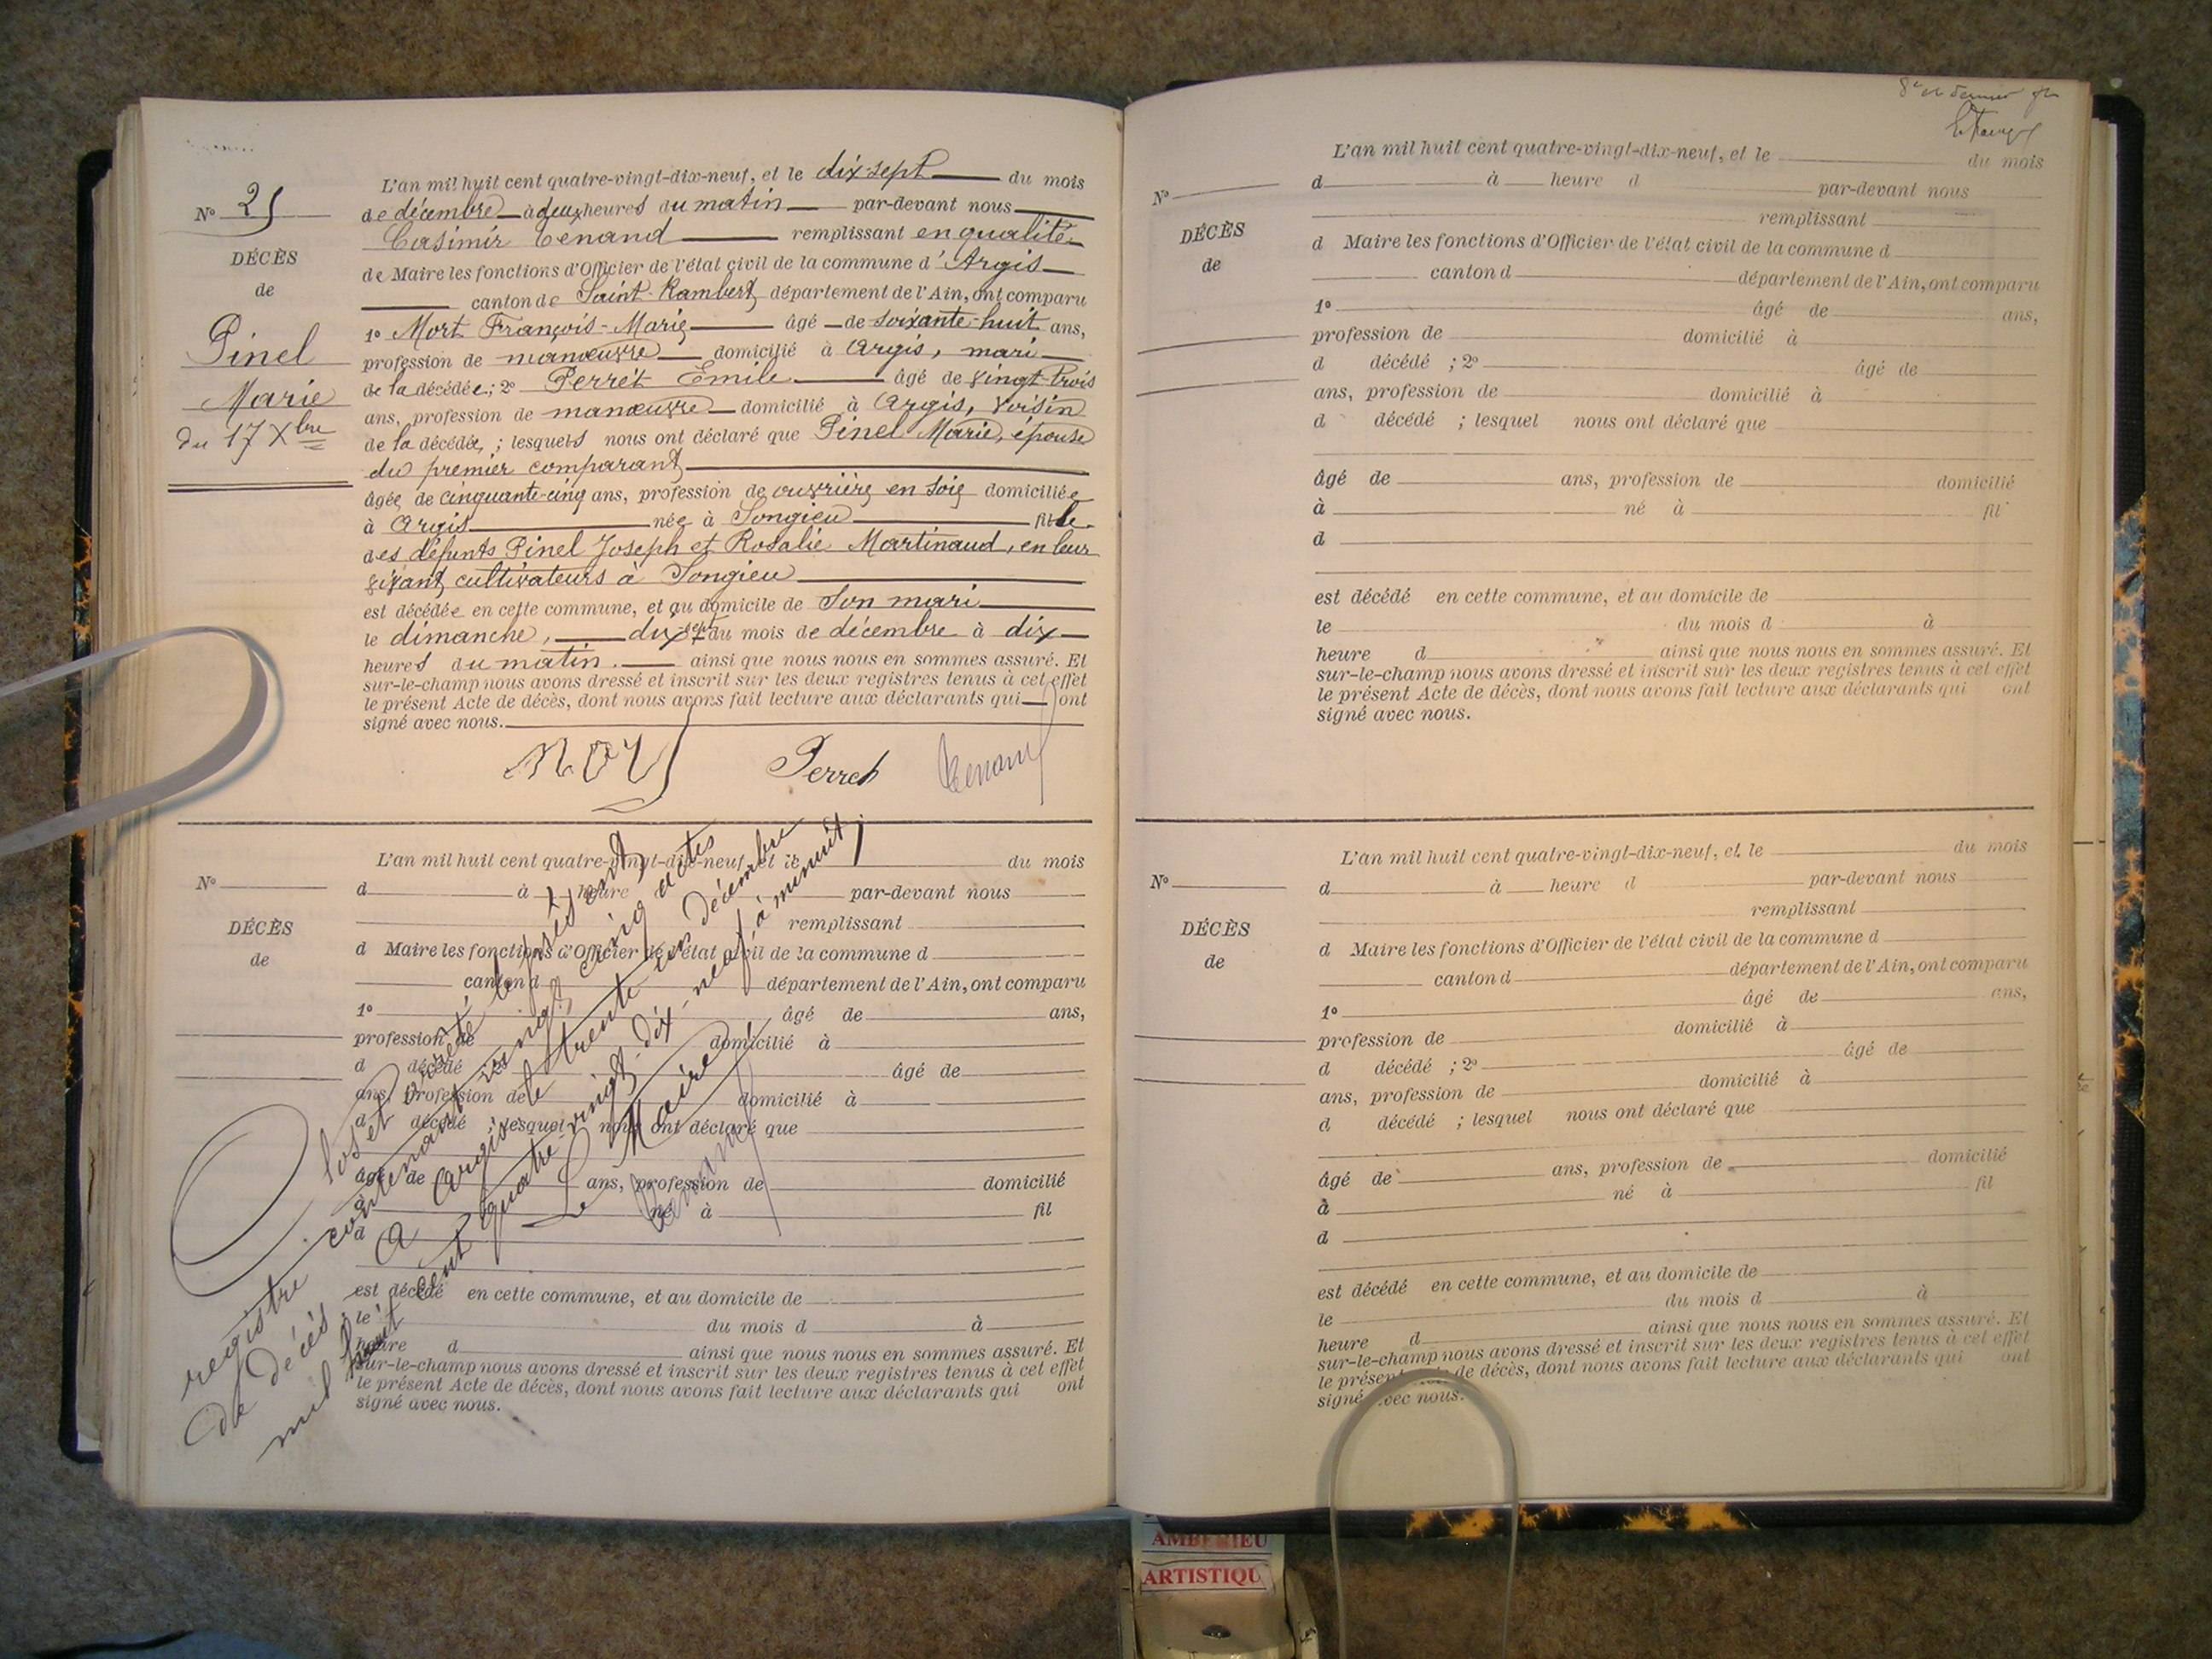 N° 25
DÉCÈS
de
Pinel
Marie
du 17 Xbre
L'an mil huit cent quatre-vingt-dix-neuf, et le dix-sept du mois
de décembre à deux heures du matin par-devant nous
Casimir Tenand remplissant en qualité
de Maire les fonctions d'Officier de l'état civil de la commune d'Argis
canton de Saint-Rambert département de l'Ain, ont comparu
1° Mort François-Marie âgé de soixante-huit ans,
profession de manœuvre domicilié à Argis, mari
de la décédée; 2° Perret Emile âgé de vingt-trois
ans, profession de manœuvre domicilié à Argis, voisin
de la décédée, ; lesquels nous ont déclaré que Pinel Marie, épouse
du premier comparant
âgée de cinquante-cinq ans, profession de ouvrière en soie domiciliée
à Argis née à Songieu fille
des défunts Pinel Joseph et Rosalie Martinaud, en leur
vivant cultivateurs à Songieu
est décédée en cette commune, et au domicile de son mari
le dimanche, dix-sept du mois de décembre à dix
heures du matin. ainsi que nous nous en sommes assuré. Et
sur-le-champ nous avons dressé et inscrit sur les deux registres tenus à cet effet
le présent Acte de décès, dont nous avons fait lecture aux déclarants qui ont
signé avec nous.
Mort Perret Tenand
N°
DÉCÈS
de
L'an mil huit cent quatre-vingt-dix-neuf, et le du mois
d à heure d par-devant nous
remplissant
d Maire les fonctions d'Officier de l'état civil de la commune d
canton d département de l'Ain, ont comparu
1° âgé de ans,
profession de domicilié à
d décédé ; 2° âgé de
ans, profession de domicilié à
d décédé ; lesquel nous ont déclaré que
âgé de ans, profession de domicilié
à né à fil
d
est décédé en cette commune, et au domicile de
le du mois d à
heure d ainsi que nous nous en sommes assuré. Et
sur-le-champ nous avons dressé et inscrit sur les deux registres tenus à cet effet
le présent Acte de décès, dont nous avons fait lecture aux déclarants qui ont
signé avec nous.
Clos et arrêté le présent
registre contenant vingt cinq actes
de décès A Argis le trente un décembre
mil huit cent quatre-vingt-dix-neuf, à minuit
Le Maire
Tenand
8e et dernier
L'an mil huit cent quatre-vingt-dix-neuf, et le du mois
N° d à heure d par-devant nous
remplissant
DÉCÈS
de
d Maire les fonctions d'Officier de l'état civil de la commune d
canton d département de l'Ain, ont comparu
1° âgé de ans,
profession de domicilié à
d décédé ; 2° âgé de
ans, profession de domicilié à
d décédé ; lesquel nous ont déclaré que
âgé de ans, profession de domicilié
à né à fil
d
est décédé en cette commune, et au domicile de
le du mois d à
heure d ainsi que nous nous en sommes assuré. Et
sur-le-champ nous avons dressé et inscrit sur les deux registres tenus à cet effet
le présent Acte de décès, dont nous avons fait lecture aux déclarants qui ont
signé avec nous.
L'an mil huit cent quatre-vingt-dix-neuf, et le du mois
N° d à heure d par-devant nous
remplissant
DÉCÈS
de
d Maire les fonctions d'Officier de l'état civil de la commune d
canton d département de l'Ain, ont comparu
1° âgé de ans,
profession de domicilié à
d décédé ; 2° âgé de
ans, profession de domicilié à
d décédé ; lesquel nous ont déclaré que
âgé de ans, profession de domicilié
à né à fil
d
est décédé en cette commune, et au domicile de
le du mois d à
heure d ainsi que nous nous en sommes assuré. Et
sur-le-champ nous avons dressé et inscrit sur les deux registres tenus à cet effet
le présent Acte de décès, dont nous avons fait lecture aux déclarants qui ont
signé avec nous.
AMBERIEU
ARTISTIQU